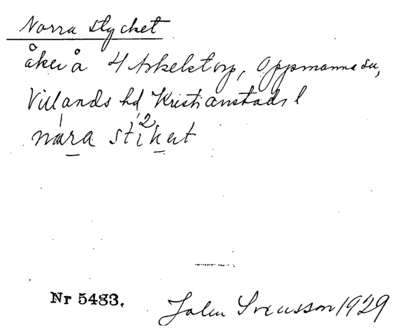 Norra stycket
åker å 4 Arkelstorp, Oppmanna sn,
Villands hd Kristianstads l
nara sti2kat
Nr 5483. John Svensson 1929